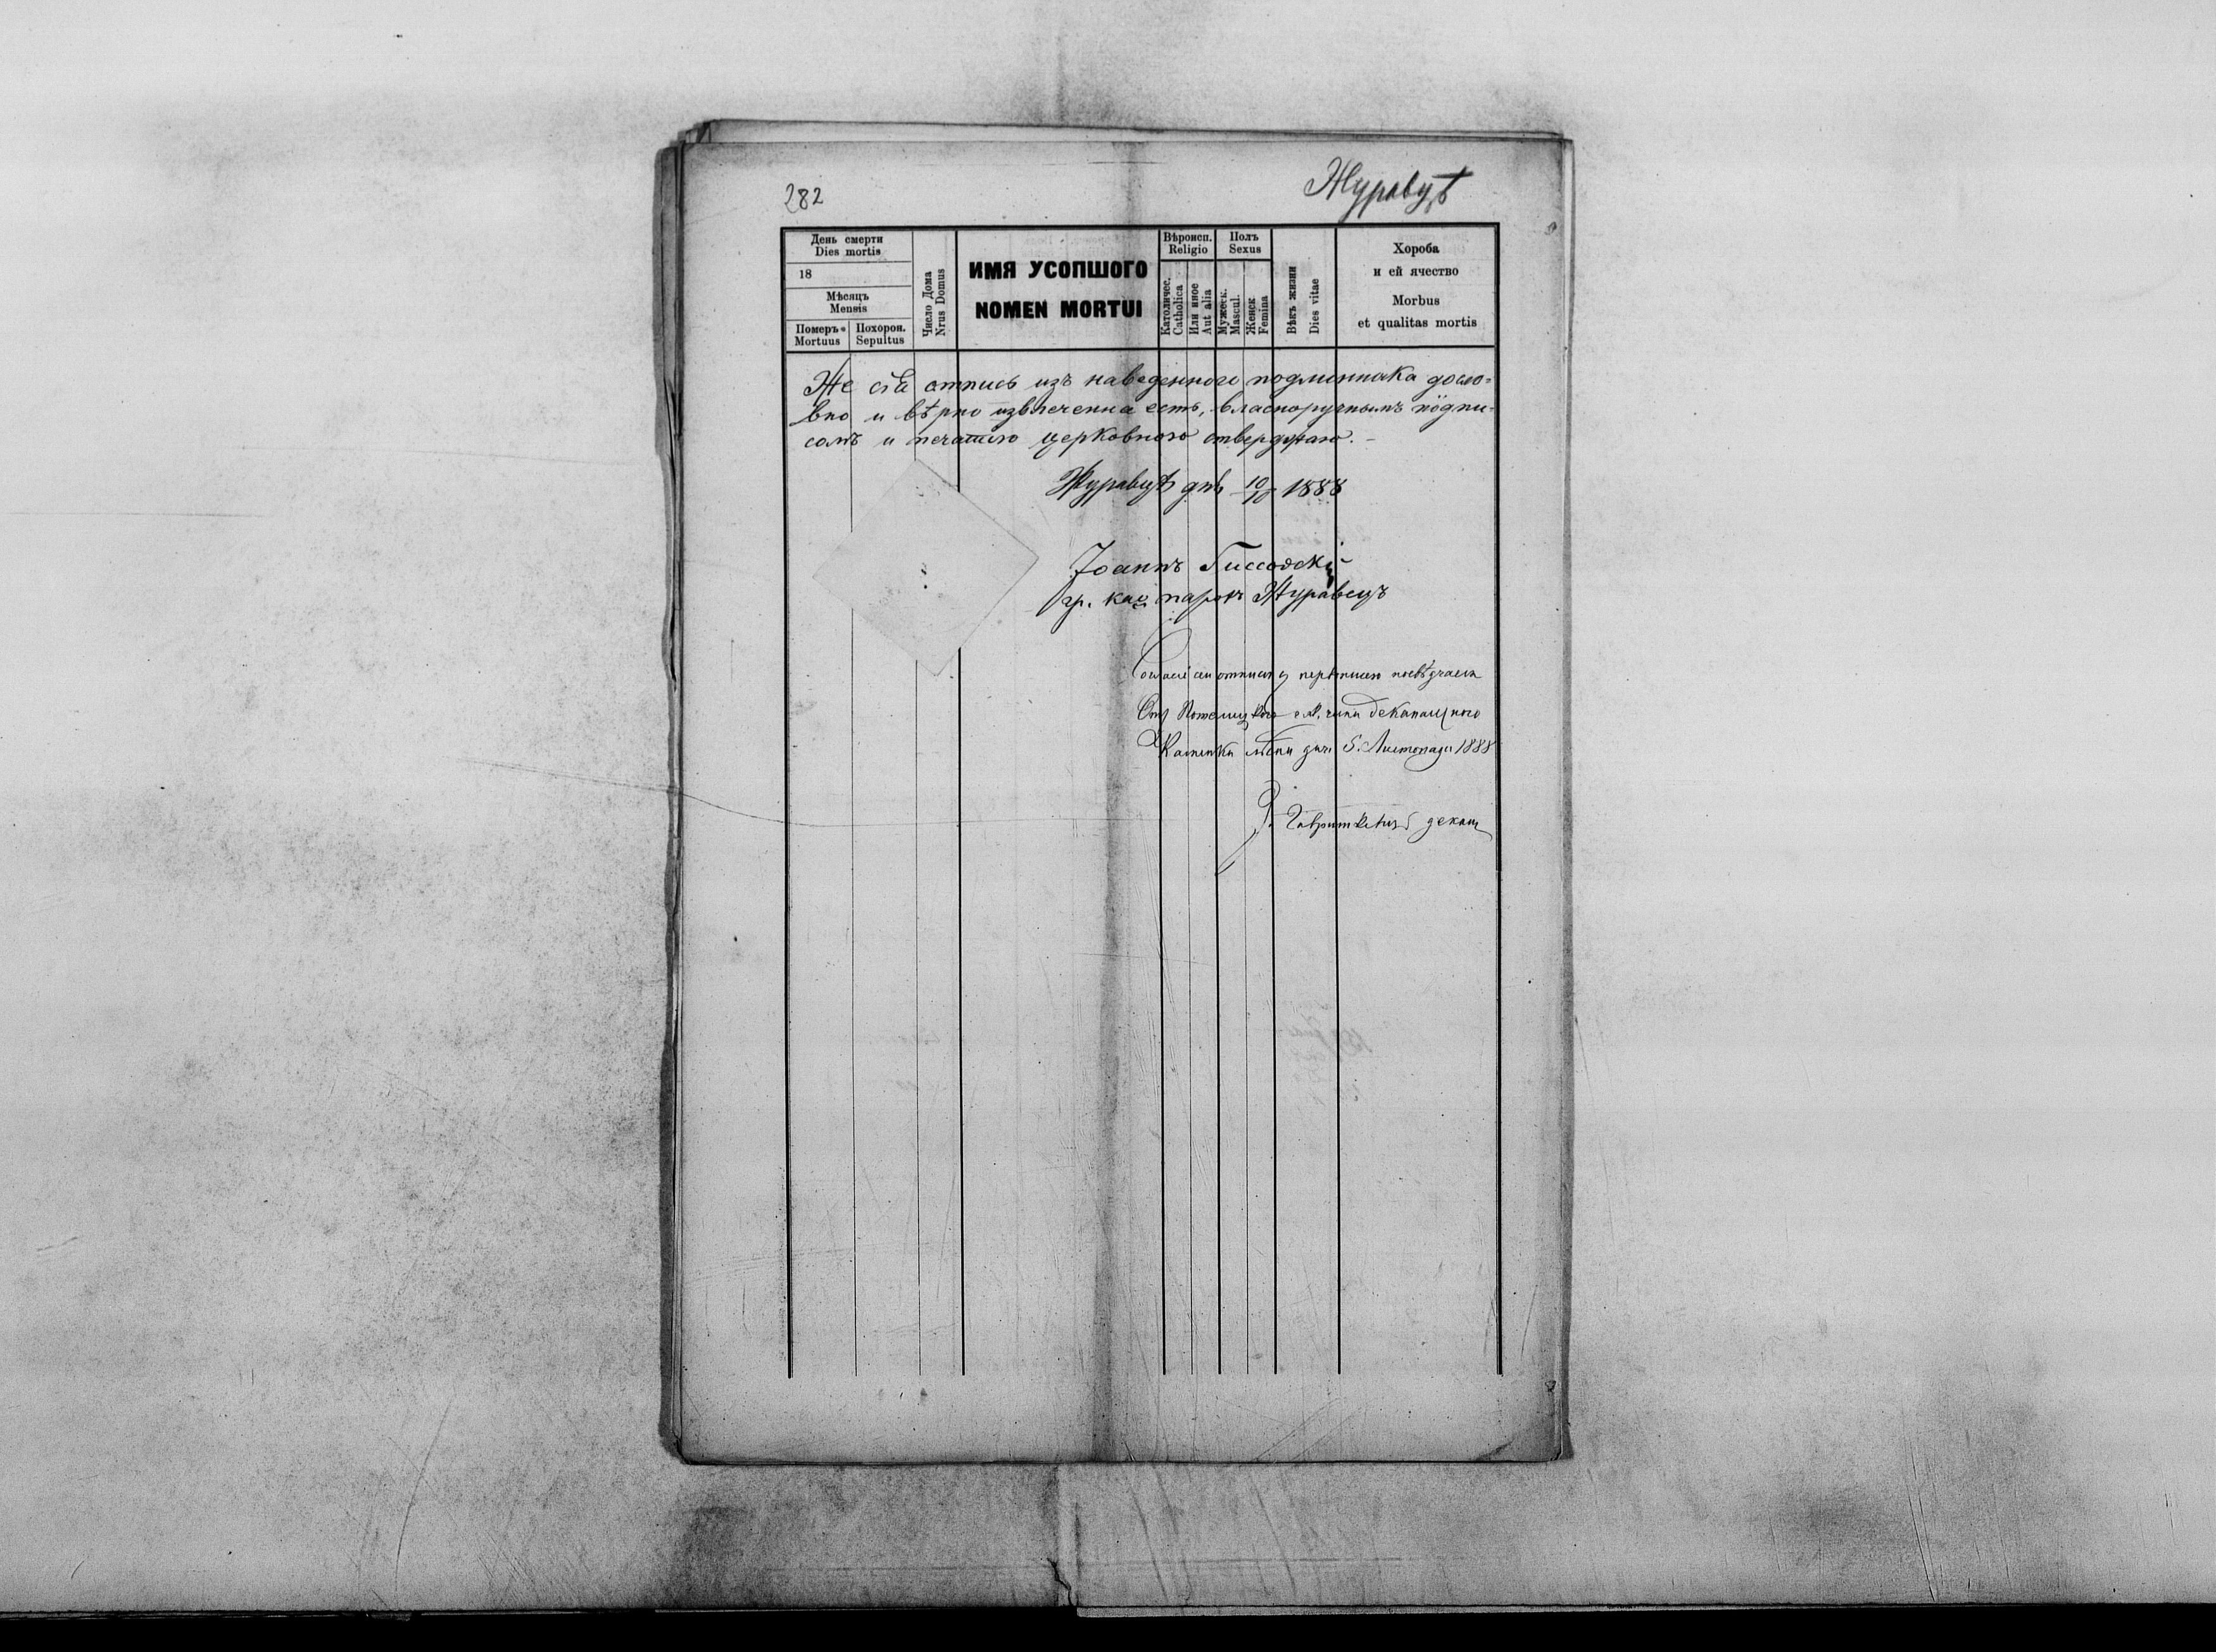 282
Журавцѣ
День смерти
Dies mortis
18
Мѣсяцъ
Mensis
Померъ
Mortuus
Похорон.
Sepultus
Число Дома
Nrus Domus
ИМЯ УСОПШОГО
NOMEN MORTUI
Вѣроисп.
Religio
Католичес.
Catholica
Или иное
Aut alia
Полъ
Sexus
Мужеск.
Mascul.
Женск
Femina
Вѣкъ жизни
Dies vitae
Хороба
и ей ячество
Morbus
et qualitas mortis
Же сіѧ отпись изъ наведенного подлинника досло-
вно и вѣрно извлеченна есть, власноручнымъ пôдпи-
сомъ и печатію церковною отверджаю. -
Журавцѣ днѧ 10/10 1888
Іоаннъ
гр. каѳ. парохъ Журавецъ
отписи
Отъ деканального
Каменки 5. Листопада 1888
деканъ